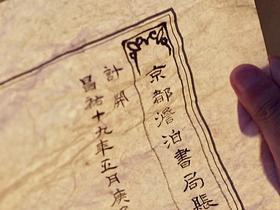 京都澹泊書局賬
計開
昌祐十九年五月庚